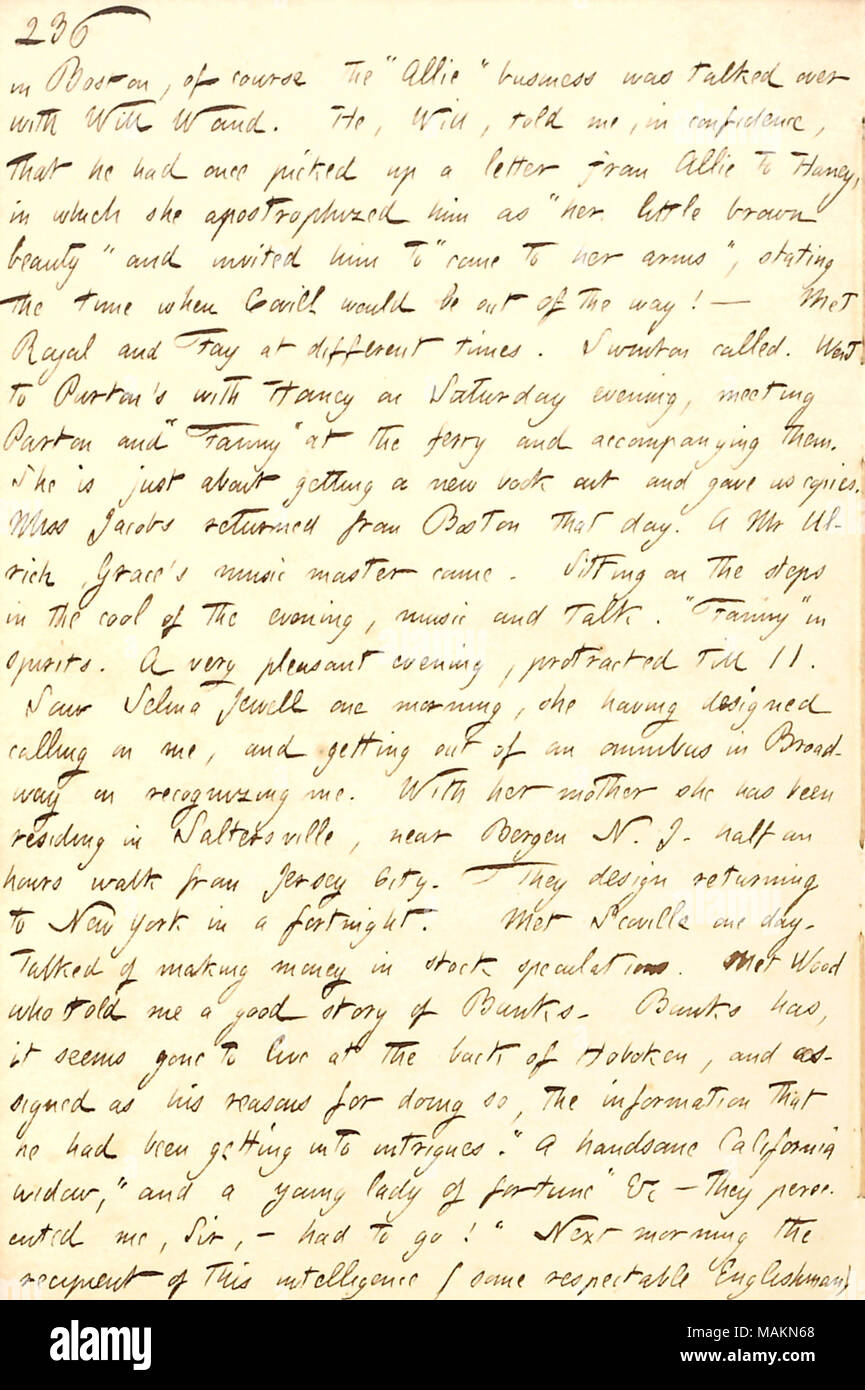 236
in Boston, of course the "Allie" business was talked over
with Will Waud. He, Will, told me, in confidence,
that he had once picked up a letter from Allie to Haney,
in which she apostrophized him as "her little brown
beauty" and invited him to "come to her arms", stating
the time when Covill would be out of the way! — Met
Royal and Fay at different times. Swinton called. Went
to Parton's with Haney on Saturday evening, meeting
Parton and "Fanny" at the ferry and accompanying them.
She is just about getting a new book out and gave us copies.
Miss Jacobs returned from Boston that day. A Mr Ul-
rich, Grace's music master came. Sitting on the steps
in the cool of the evening, music and talk. "Fanny" in
spirits. A very pleasant evening, protracted till 11.
Saw Selina Jewell one morning, she having designed
calling on me, and getting out of an omnibus in Broad-
way on recognizing me. With her mother she has been
residing in Saltersville, near Bergen N. J. half an
hours walk from Jersey City. They design returning
to New York in a fortnight. Met Scoville one day.
Talked of making money in stock speculations. Met Wood
who told me a good story of Banks. Banks has,
it seems gone to live at the back of Hoboken, and as-
signed as his reasons for doing so, the information that
he had been getting into intrigues. "A handsome California
widow," and a young lady of fortune" &c — they perse-
cuted me, Sir, — had to go!" Next morning the
recipient of this intelligence (some respectable Englishman)
alamy
Image ID: MAKN68
www.alamy.com